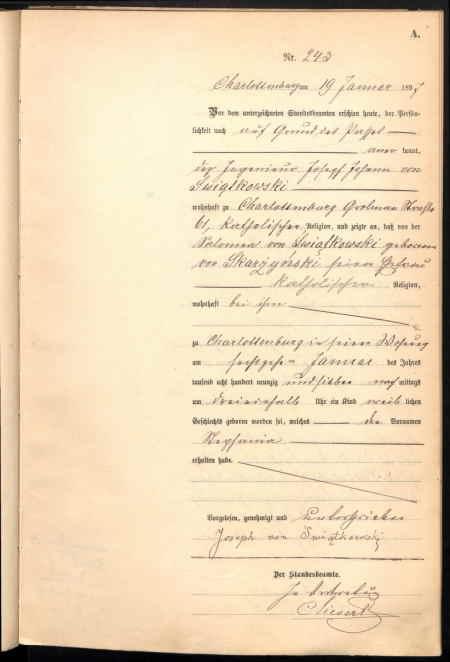 A.
Nr. 243
Charlottenburg am 19 Januar 1897
Vor dem unterzeichneten Standesbeamten erschien heute, der Persön-
lichkeit nach auf Grund des Passes
aner kannt,
der Ingenieur Josef Johann von
Swiątkowski
wohnhaft zu Charlottenburg Grolman Straße
61, katholischer Religion, und zeigte an, daß von der
Salomea von Swiątkowski geborenen
von Skarzynski seiner Ehefrau
katholischer Religion,
wohnhaft bei ihm
zu Charlottenburg in seiner Wohnung
am sechszehn Januar des Jahres
tausend acht hundert neunzig und sieben nach mittags
um dreieinhalb Uhr ein Kind weib lichen
Geschlechts geboren worden sei, welches die Vornamen
Stephania
erhalten habe.
Vorgelesen, genehmigt und unterschrieben
Joseph von Swiątkowski
Der Standesbeamte.
In Vertretung